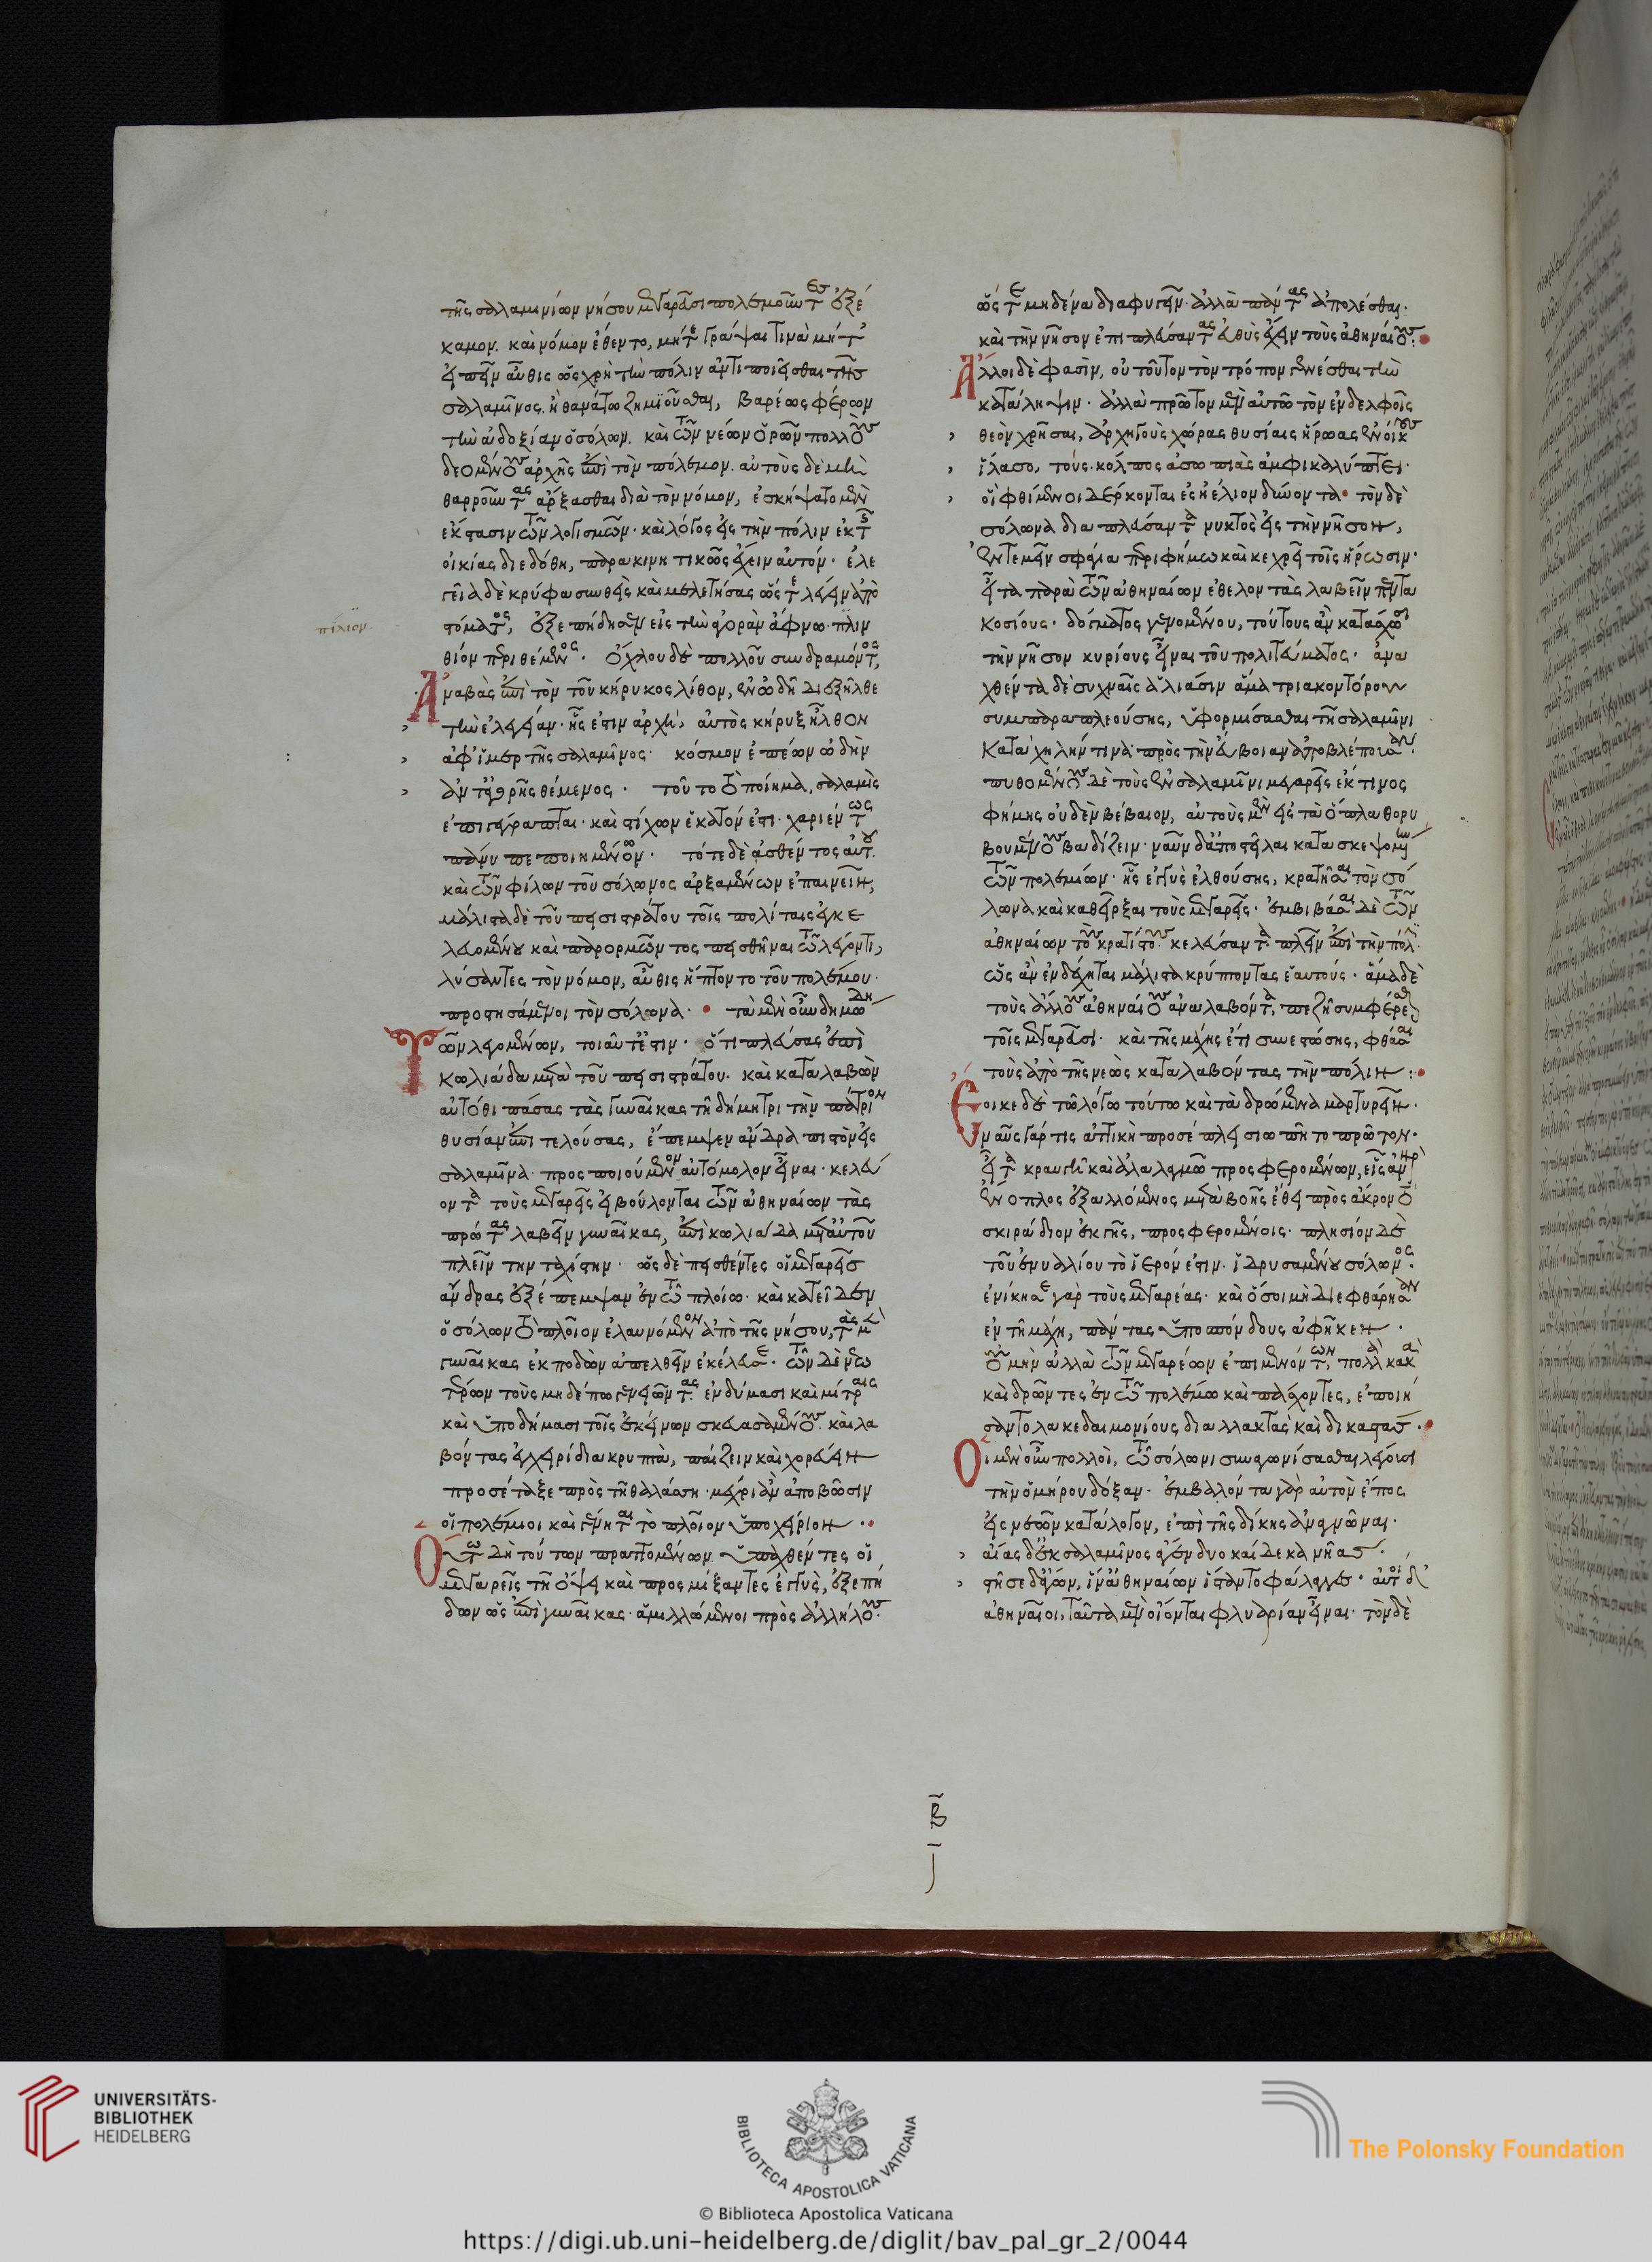 τῆς σαλαμινίων νήσου μεγαρεῦσι πολεμοῦντες ἐξέ
καμον. καὶ νόμον ἔθεντο, μήτε γράψαι τινὰ μήτ'
εἰπεῖν αὖθις ὡς χρὴ τὴν πόλιν ἀντιποιεῖσθαι τῆς
σαλαμῖνος. ἢ θανάτω ζημϊοῦσθαι, βαρέως φέρων
τὴν ἀδοξίαν ὁ σόλων. καὶ τῶν νέων ὁρῶν πολλοὺς
δεομένους ἀρχῆς ἐπὶ τὸν πόλεμον. αὐτοὺς δὲ μὴ
θαρροῦντας ἄρξασθαι διὰ τὸν νόμον, ἐσκήψατο μὲν
ἔκστασιν τῶν λογισμῶν. καὶ λόγος εἰς τὴν πόλιν ἐκ τῆς
οἰκίας διεδόθη, παρακινητικῶς ἔχειν αὐτόν. ἐλε
γεῖα δὲ κρύφα συνθεὶς καὶ μελετήσας ὥστε λέγειν ἀπὸ
στόματος, ἐξεπήδησεν εἰς τὴν ἀγορὰν ἄφνω. πλιν
πίλιον.
θίον περιθέμενος. ὄχλου δὲ πολλοῦ συνδραμόντος,
Ἀναβὰς ἐπὶ τὸν τοῦ κήρυκος λίθον, ἐν ὠδῆ διεξῆλθε
τὴν ἐλεγείαν. ἧς ἐστιν ἀρχὴ, αὐτὸς κήρυξ ἦλθον
ἀφ' ἱμερτῆς σαλαμῖνος. κόσμον ἐπέων ὠδὴν
ἀντ' ἀγορῆς θέμενος. τοῦτο τὸ ποίημα, σαλαμὶς
ἐπιγέγραπται. καὶ στίχων ἑκατόν ἐστι. χαριέντως
πάνυ πεποιημένων. τότε δὲ ἀσθέντος αὐτοῦ.
καὶ τῶν φίλων τοῦ σόλωνος ἀρξαμένων ἐπαινεῖν,
μάλιστα δὲ τοῦ πεισιστράτου τοῖς πολίταις ἐγκε
λευομένου καὶ παρορμῶντος πεισθῆναι τῶ λέγοντι,
λύσαντες τὸν νόμον, αὖθις ἥπτοντο τοῦ πολέμου.
προστησάμενοι τὸν σόλωνα. τὰ μὲν οὖν δημώδη
Τῶν λεγομένων, τοιαῦτ' ἐστιν. ὅτι πλεύσας ἐπὶ
κωλιάδα μετὰ τοῦ πεισιστράτου. καὶ καταλαβὼν
αὐτόθι πάσας τὰς γυναῖκας τῆ δήμητρι τὴν πάτριον
θυσίαν ἐπιτελούσας, ἔπεμψεν ἄνδρα πιστὸν εἰς
σαλαμῖνα. προσποιούμενον αὐτόμολον εἶναι. κελεύ
οντα τοὺς μεγαρεῖς εἰ βούλονται τῶν ἀθηναίων τὰς
πρώτας λαβεῖν γυναῖκας, ἐπὶ κωλιάδα μετ' αὐτοῦ
πλεῖν τὴν ταχίστην. ὡς δὲ πεισθέντες οἱ μεγαρεῖς
ἄνδρας ἐξέπεμψαν ἐν τῶ πλοίω. καὶ κατεῖδεν
ὁ σόλων τὸ πλοῖον ἐλαυνόμενον ἀπὸ τῆς νήσου, τὰς μὲν
γυναῖκας ἐκποδὼν ἀπελθεῖν ἐκέλευσε. τῶν δὲ νεω
τέρων τοὺς μηδέπω γενειῶντας ἐνδύμασι καὶ μίτραις
καὶ ὑποδήμασι τοῖς ἐκείνων σκευασαμένους. καὶ λα
βόντας ἐγχειρίδια κρυπτὰ, παίζειν καὶ χορεύειν
προσέταξε πρὸς τῆ θαλάσση. μέχρι ἂν ἀποβῶσιν
οἱ πολέμιοι καὶ γένηται τὸ πλοῖον ὑποχείριον.
Οὕτω δὴ τούτων πραττομένων. ὑπαχθέντες οἱ
μεγαρεῖς τῆ ὄψει καὶ προσμίξαντες ἐγγὺς, ἐξεπή
δων ὡς ἐπὶ γυναῖκας. ἁμιλλώμενοι πρὸς ἀλλήλους.
ὥστε μηδένα διαφυγεῖν. ἀλλὰ πάντας ἀπολέσθαι.
καὶ τὴν νῆσον ἐπιπλεύσαντας εὐθὺς ἔχειν τοὺς ἀθηναίους.
Ἄλλοι δὲ φασὶν, οὐ τοῦτον τὸν τρόπον γενέσθαι τὴν
κατάληψιν. ἀλλὰ πρῶτον μὲν αὐτῶ τὸν ἐν δελφοῖς
θεὸν χρῆσαι, ἀρχηγοὺς χώρας θυσίαις ἥρωας ἐνοίκους
ἵλασο, τούς. κόλπος ἀσωπιὰς ἀμφικαλύπτει.
οἳ φθίμενοι δέρκονται ἐς ἠέλιον δύνοντα. τὸν δὲ
σόλωνα διαπλεύσαντα νυκτὸς εἰς τὴν νῆσον,
ἐντεμεῖν σφάγια περιφήμω καὶ κεχρεῖ τοῖς ἥρωσιν.
εἶτα παρὰ τῶν ἀθηναίων ἐθελοντὰς λαβεῖν πεντα
κοσίους. δόγματος γενομένου, τούτους ἂν κατάσχωσι
τὴν νῆσον κυρίους εἶναι τοῦ πολιτεύματος. ἀνα
χθέντα δὲ συχναῖς ἁλιάσιν ἅμα τριακοντόρου
συμπαραπλεούσης, ὑφορμίσασθαι τῆ σαλαμῖνι
κατὰ χηλήν τινα πρὸς τὴν εὔβοιαν ἀποβλέπουσαν.
πυθομένους δὲ τοὺς ἐν σαλαμῖνι μεγαρεῖς ἔκ τινος
φήμης οὐδὲν βέβαιον, αὐτοὺς μὲν εἰς τὰ ὅπλα θορυ
βουμένους βαδίζειν. ναῦν δ' ἀποστεῖλαι κατασκεψομένην
τῶν πολεμίων. ἧς ἐγγὺς ἐλθούσης, κρατῆσαι τὸν σό
λωνα καὶ καθεῖρξαι τοὺς μεγαρεῖς. ἐμβιβάσαι δὲ τῶν
ἀθηναίων τοὺς κρατίστους. κελεύσαντα πλεῖν ἐπὶ τὴν πόλιν.
ὡς ἂν ἐνδέχηται μάλιστα κρύπτοντας ἑαυτούς. ἅμα δὲ
τοὺς ἄλλους ἀθηναίους ἀναλαβόντα, πεζῆ συμφέρεσθαι
τοῖς μεγαρεῦσι. καὶ τῆς μάχης ἔτι συνεστώσης, φθάσαι
τοὺς ἀπὸ τῆς νεὼς καταλαβόντας τὴν πόλιν:
Ἔοικε δὲ τῶ λόγω τούτω καὶ τὰ δρώμενα μαρτυρεῖν.
ναῦς γάρ τις ἀττικὴ προσέπλει σιωπῆ τὸ πρῶτον.
εἶτα κραυγῆ καὶ ἀλαλαγμῶ προσφερομένων, εἷς ἀνὴρ
ἔνοπλος ἐξαλλόμενος μετὰ βοῆς ἔθει πρὸς ἄκρον τὸ
σκιράδιον ἐκ γῆς, προσφερομένοις. πλησίον δὲ
τοῦ ἐνυαλίου τὸ ἱερόν ἐστιν. ἱδρυσαμένου σόλωνος.
ἐνίκησε γὰρ τοὺς μεγαρέας. καὶ ὅσοι μὴ διεφθάρησαν
ἐν τῆ μάχη, πάντας ὑποσπόνδους ἀφῆκεν.
Οὐ μὴν ἀλλὰ τῶν μεγαρέων ἐπιμενόντων, πολλὰ κακὰ
καὶ δρῶντες ἐν τῶ πολέμω καὶ πάσχοντες, ἐποιή
σαντο λακεδαιμονίους, διαλλακτὰς καὶ δικαστάς.
Οἱ μὲν οὖν πολλοὶ, τῶ σόλωνι συναγωνίσασθαι λέγουσι
τὴν ὁμήρου δόξαν. ἐμβαλόντα γὰρ αὐτὸν ἔπος
εἰς νεῶν κατάλογον, ἐπὶ τῆς δίκης ἀναγνῶναι.
αἴας δ' ἐκ σαλαμῖνος ἄγεν δυο καί δεκα νῆας.
στῆσε δ' ἄγων, ἵν' ἀθηναίων ἵσταντο φάλαγγες. αὐτοὶ δ'
ἀθηναῖοι, ταῦτα μὲν οἴονται φλυαρίαν εἶναι. τὸν δὲ
β
UNIVERSITÄTS-
BIBLIOTHEK
HEIDELBERG
BIBLIOTECA APOSTOLICA VATICANA
The Polonsky Foundation
© Biblioteca Apostolica Vaticana
https://digi.ub.uni-heidelberg.de/diglit/bav_pal_gr_2/0044